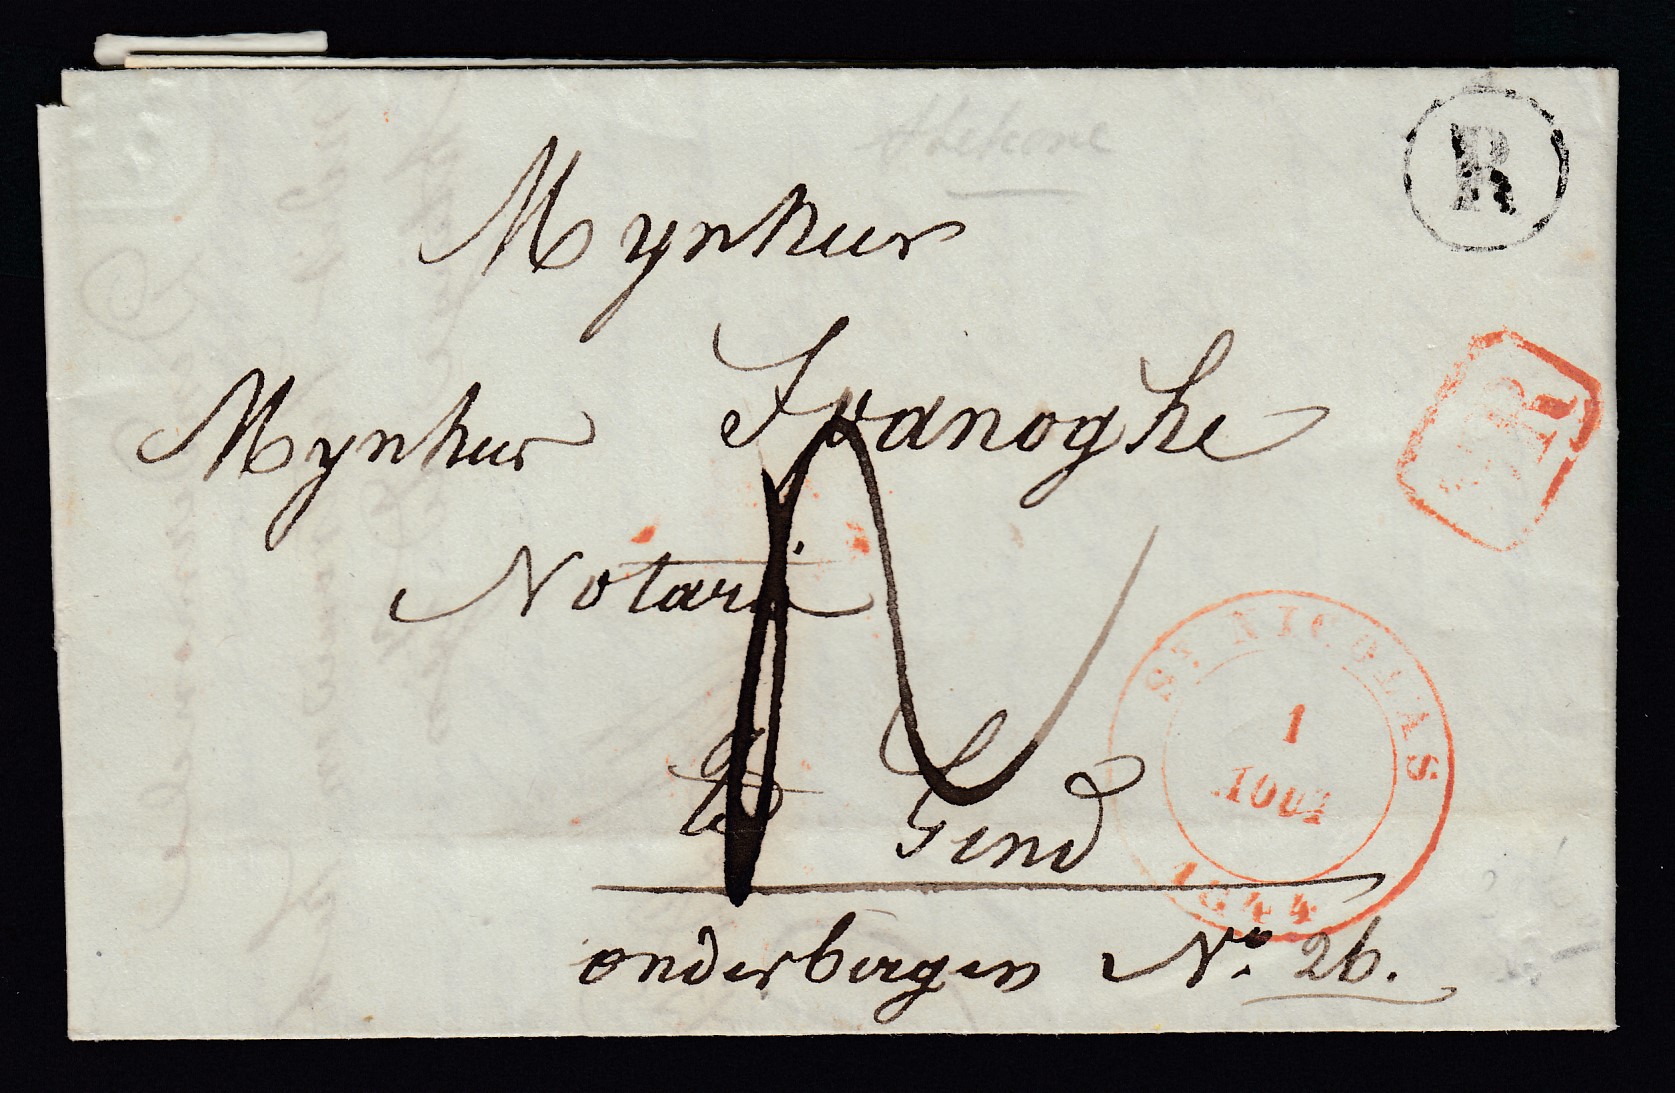 R
Mynheer
Mynheer Ivanoghe
SR
Notaris
te Gend
St. NICOLAS
1
AOUT
1844
onderbergen No. 26.